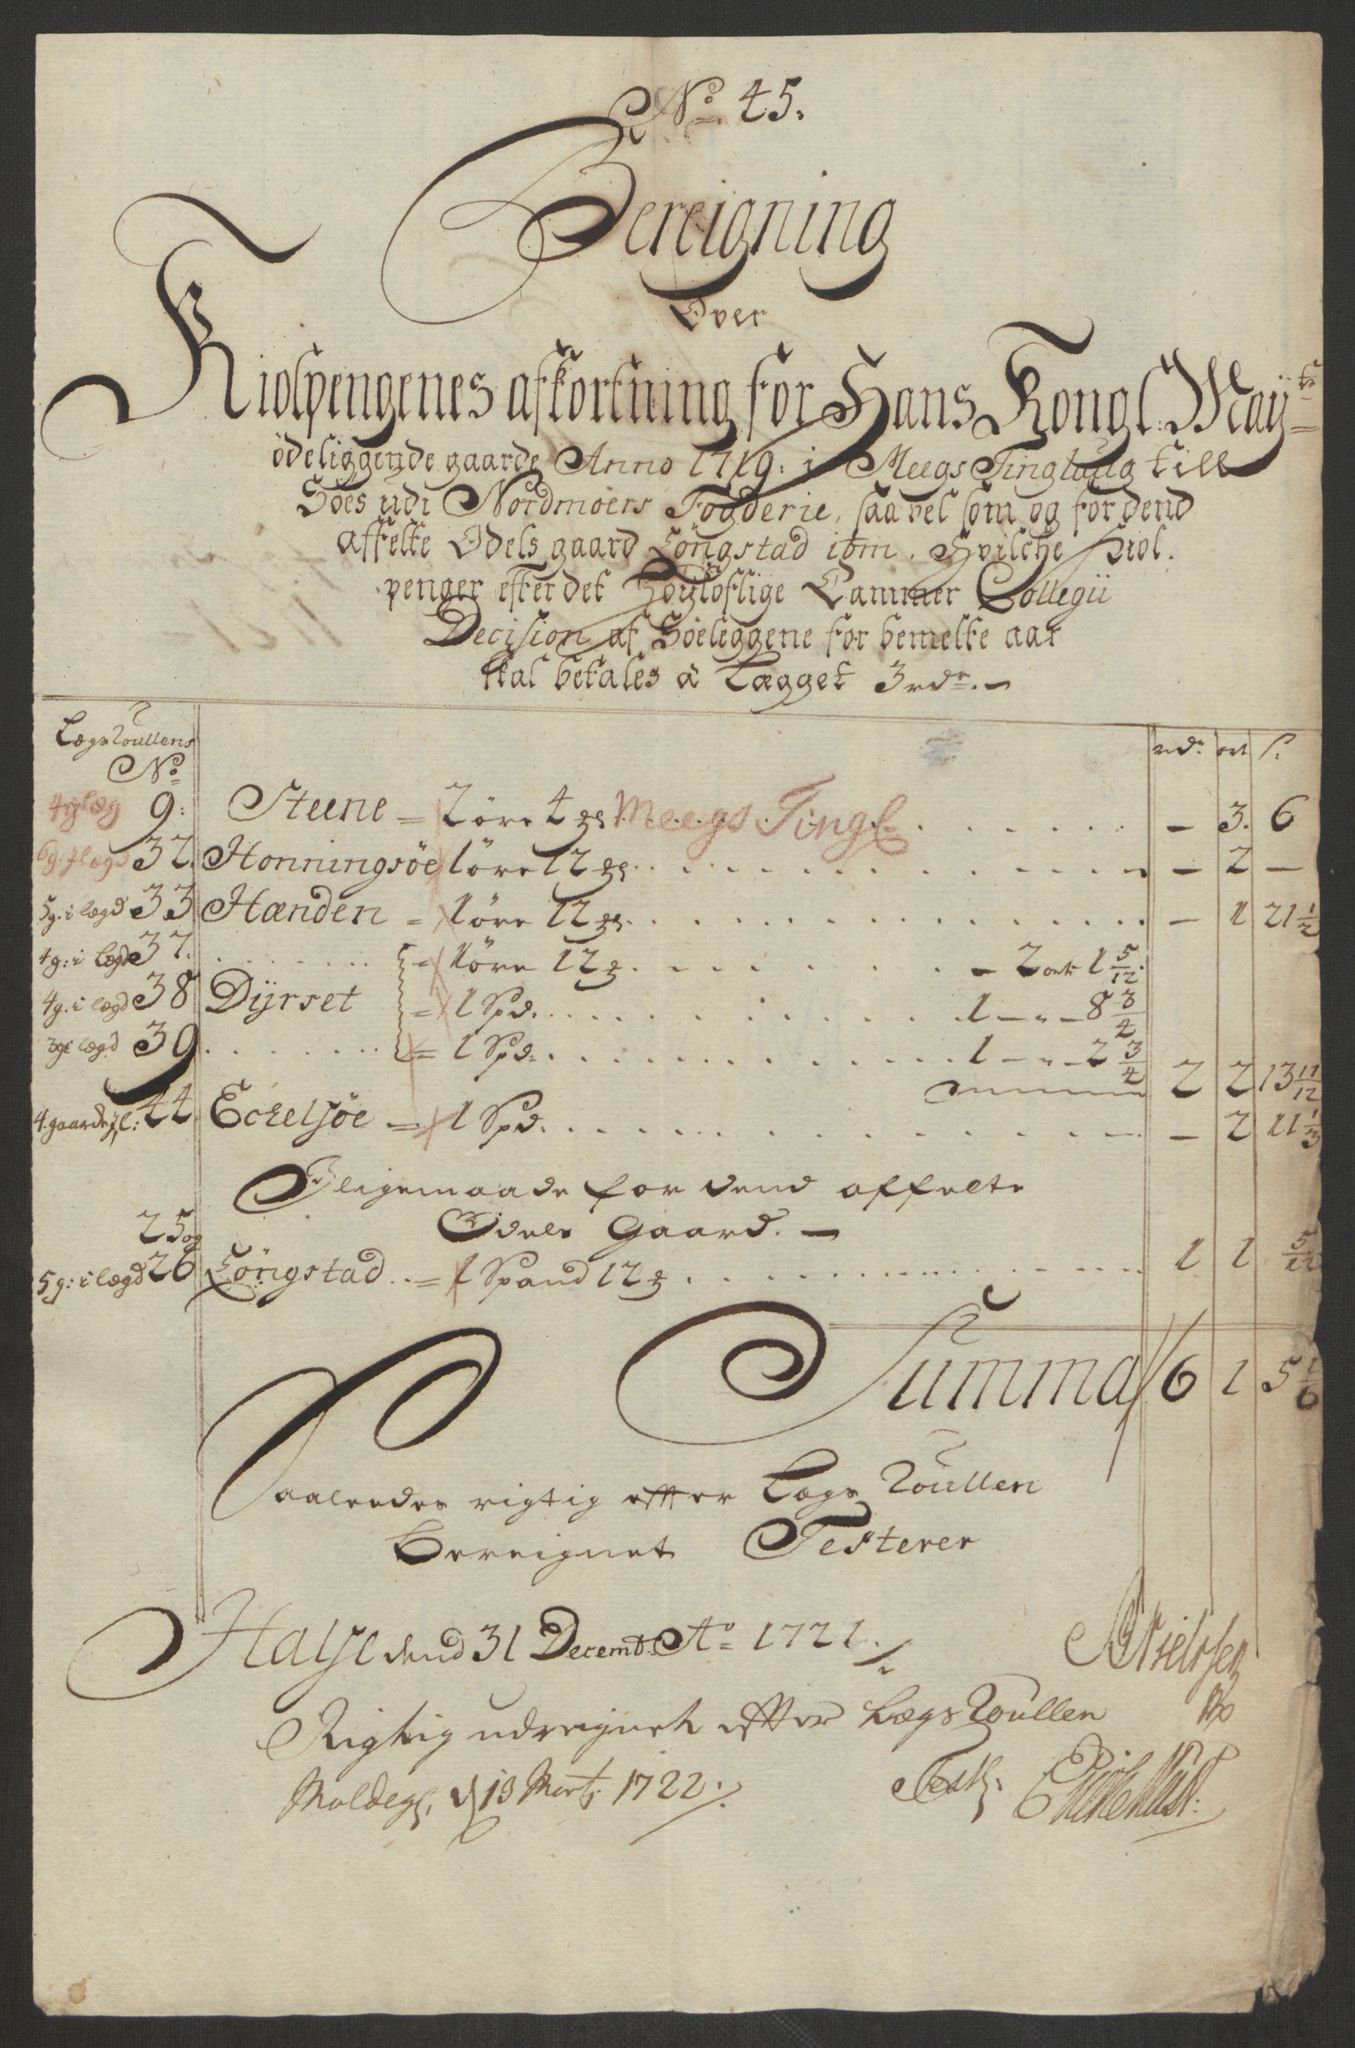 No 45.
Bereigning
Over
Kiolpengenes afkortning for Hans Kongl: Mayts
ödeliggende gaarde Anno 1719: i Meegs Tinglaug till
Söes udi Nordmöers Fogderie, saa vel som og for dend
affelte Odels gaard Löngstad ibm. Hvilche Kiol
penger efter det Höyloflige Cammer Collegii
Decision af Söeleggene for bemelte aar
skal betales à Lægget 3 rdr. —
Lægs Roullens
No
rdr. ort s.
4 g i læg 9: Steene = 2 öre 4 Meegs Tingl — 3. 6
6 g. i lægd 32. Honningsöe 1 öre 12 — 2 —
5 g. i lægd 33 Hænden = 1 öre 12 — 1 21 1/2
4 g: i Lægd 37. = 1 öre 12 — 2 ort 1 5/12.
4 g. i lægd 38 Dÿrset = 1 Spd. 1 — „ — 8 3/4
3 g i lægd 39 = 1 Spd. 1 — „ — 2 3/4
2 2 13 11/12
4 gaarde i l: 44. Eckelsöe = 1 Spd. — 2 11 1/3
Iligemaade for dend affelte
Odels Gaard. —
25 og
5 g: i lægd 26 Löngstad = 1 Spand 12 1 1 5/12
Summa 6 1 5 1/6
Saaledes rigtig efter Lægs Roullen
bereignet Testerer
Halse dend 31 Decembr Ao 1721.
Rigtig udreignet efter Lægs Roullen
Moldeg. d 13 Marti 1722.
Test.